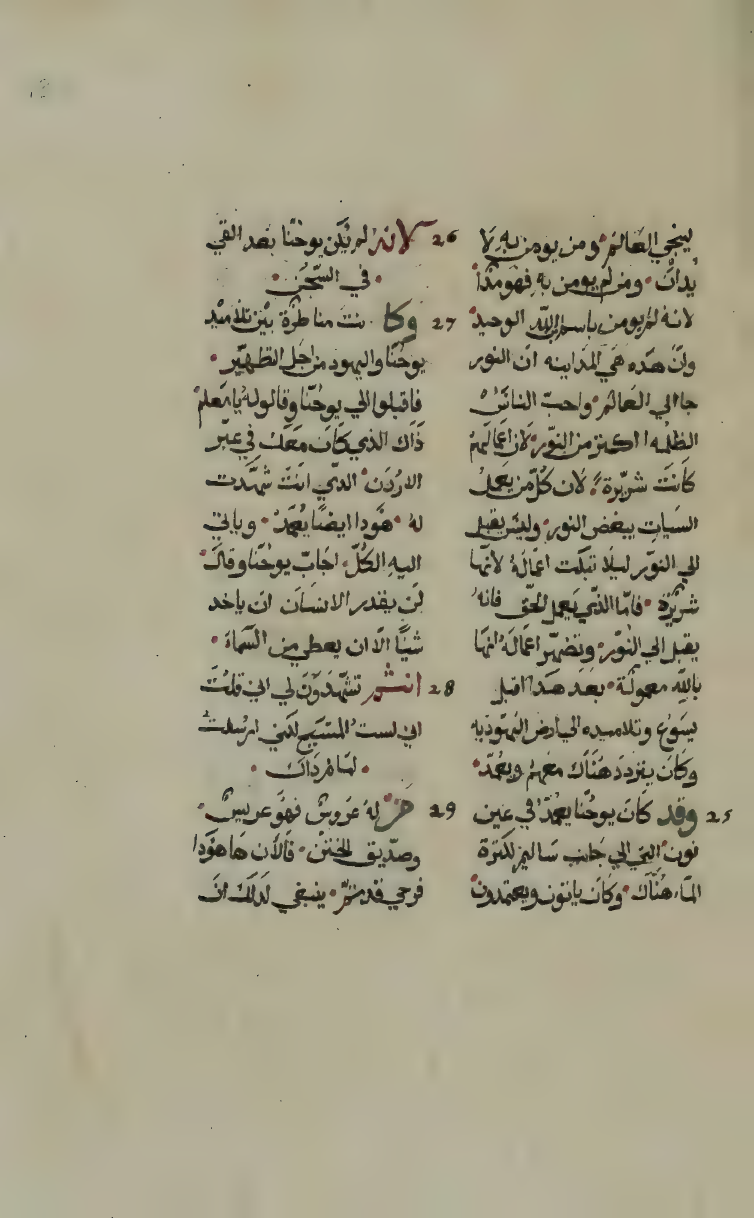 ينجي العالم ومن يومن به لا
يدان ومن لم يومن به فهو مدا
لانه لم يومن باسم ابن الله الوحيد
وان هده هي المداينه ان النور
جا الي العالم واحب الناس
الظلمه اكتر من النور لان اعمالهم
كانت شريرة لان كل من يعمل
السيات يبغض النور وليس يقبل
الي النور ليلا تبكت اعماله لانها
شريرة فاما الدي يعمل الحق فانه
يقبل الي النور وتضهر اعماله انها
بالله معمولة بعد هدا اقبل
يسوع وتلاميده الي ارض اليهوديه
وكان يتردد هناك معهم ويعمد
25 وقد كان يوحنا يعمد في عين
نون التي الي جانب ساليم لكترة
الماء هناك وكان ياتون ويعتمدون
26 لانه لم يكن يوحنا بعد القي
في السجن
27 وكا نت مناظرة بين تلاميد
يوحنا واليهود من اجل التطهير
فاقبلوا الي يوحنا وقالوا له يا معلم
داك الدي كان معك في عبر
الاردن الدي انت شهدت
له هودا ايضا يعمد وياتي
اليه الكل اجاب يوحنا وقال
لن يقدر الانسان ان ياخد
شيا الا ان يعطي من السماء
28 انتم تشهدون لي اني قلت
اني لست المسيح لكني ارسلت
امام داك
29 من له عروس فهو عريس
وصديق الختن فالان ها هودا
فرحي قد تم ينبغي لدلك ان